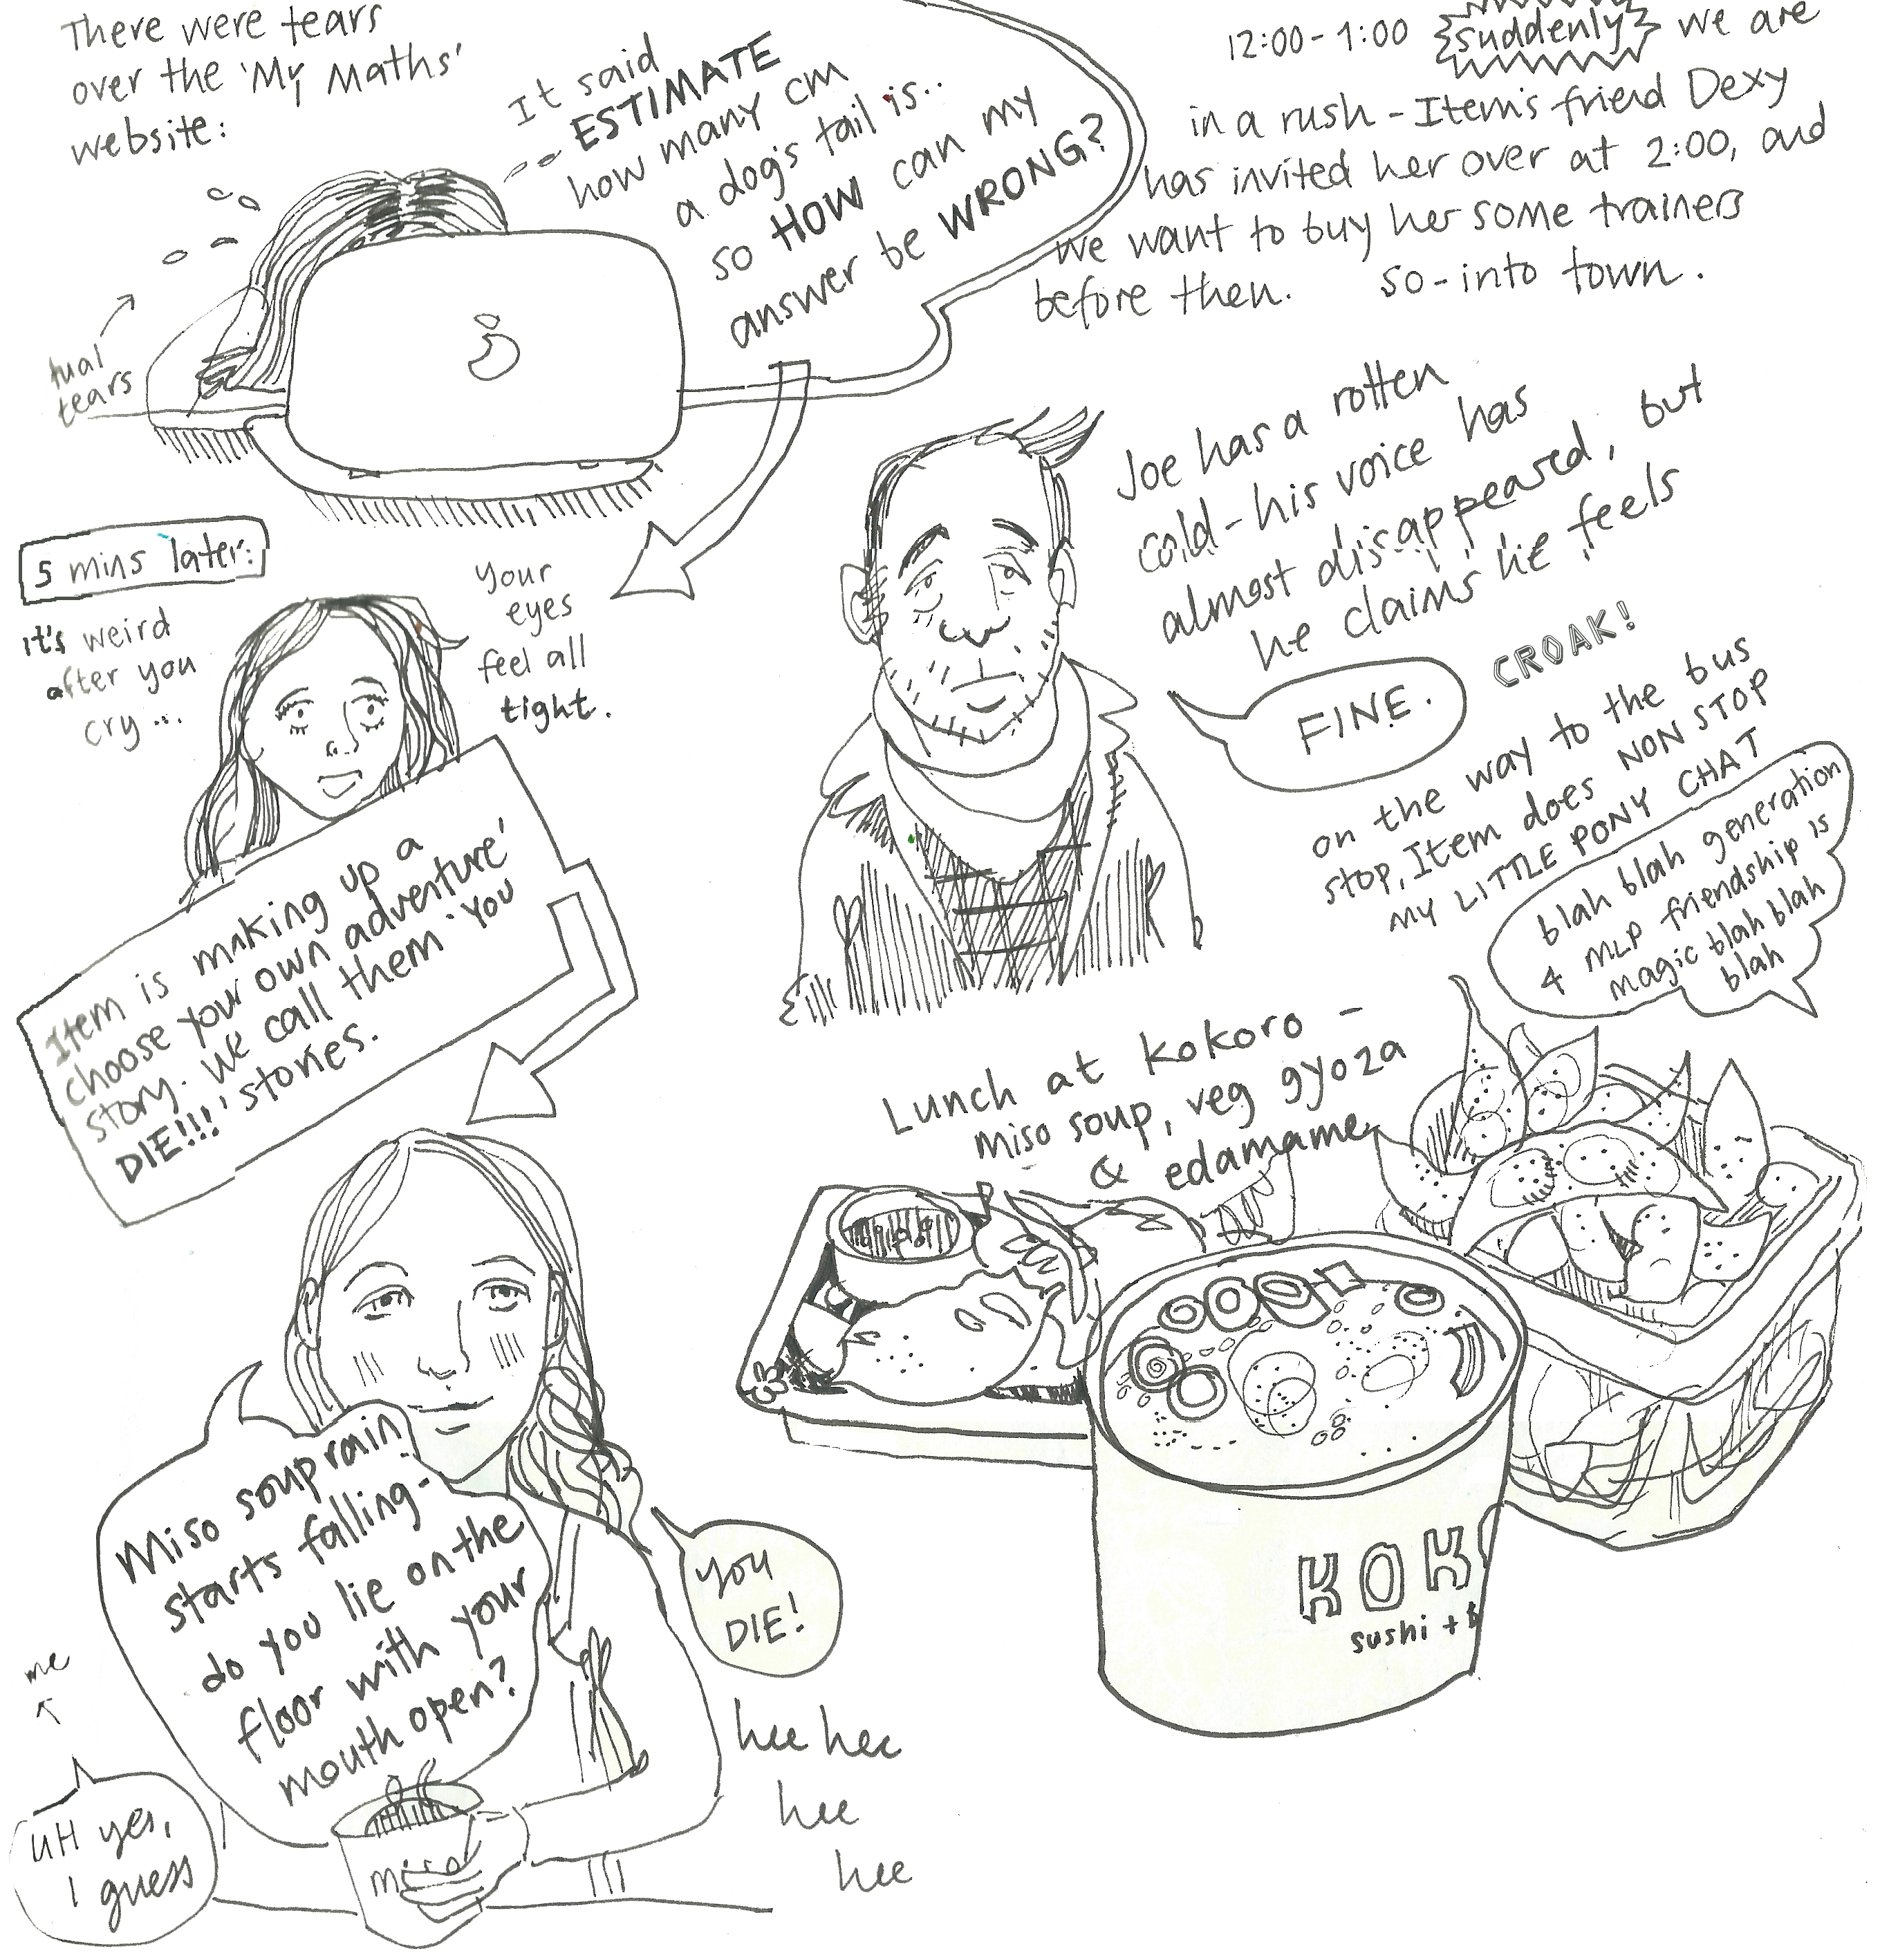 There were tears
over the 'My Maths'
website:
It said
ESTIMATE
how many cm
a dog's tail is..
so HOW can my
answer be WRONG?
tual
tears
5 mins later:
it's weird
after you
cry...
your
eyes
feel all
tight.
Item is making up a
'choose your own adventure'
story. We call them 'YOU
DIE!!!' stories.
Miso soup rain
starts falling-
do you lie on the
floor with your
mouth open?
me
UH yes,
I guess
miso
you
DIE!
hee hee
hee
hee
12:00-1:00 suddenly we are
in a rush - Item's friend Dexy
has invited her over at 2:00, and
we want to buy her some trainers
before then. so-into town.
Joe has a rotten
cold - his voice has
almost disappeared, but
he claims he feels
FINE.
CROAK!
on the way to the bus
stop, Item does NON STOP
MY LITTLE PONY CHAT
blah blah generation
4 MLP friendship is
magic blah blah
blah
Lunch at Kokoro -
miso soup, veg gyoza
& edamame
KOK
sushi +